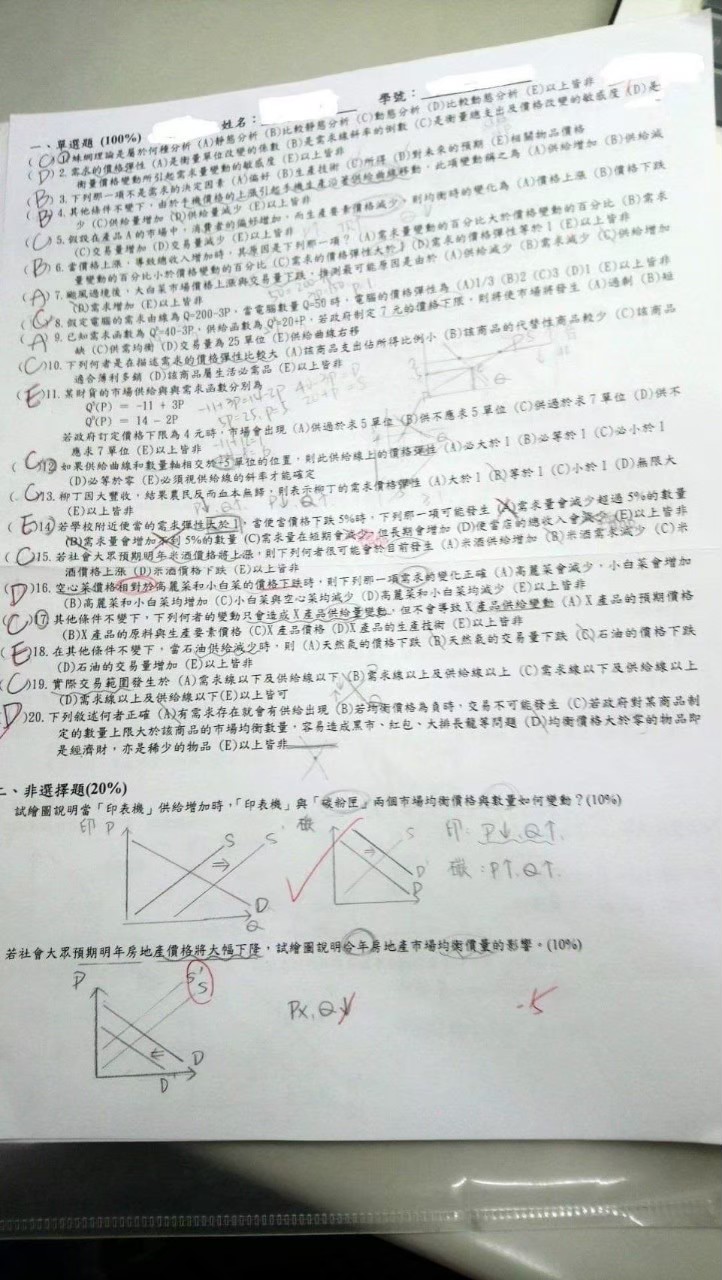 姓名： 學號：
一、單選題 (100%)
(C)1.蛛網理論是屬於何種分析 (A)靜態分析 (B)比較靜態分析 (C)動態分析 (D)比較動態分析 (E)以上皆非
(D)2.需求的價格彈性 (A)是衡量單位改變的係數 (B)是需求線斜率的倒數 (C)是衡量總支出及價格改變的敏感度 (D)是
衡量價格變動所引起需求量變動的敏感度 (E)以上皆非
(B)3.下列那一項不是需求的決定因素 (A)偏好 (B)生產技術 (C)所得 (D)對未來的預期 (E)相關物品價格
(B)4.其他條件不變下，由於手機價格的上漲引起手機生產沿著供給曲線移動，此項變動稱之為 (A)供給增加 (B)供給減
少 (C)供給量增加 (D)供給量減少 (E)以上皆非
(C)5.假設在產品A的市場中，消費者的偏好增加，而生產要素價格減少，則均衡時的變化為 (A)價格上漲 (B)價格下跌
(C)交易量增加 (D)交易量減少 (E)以上皆非
(B)6.當價格上漲，導致總收入增加時，其原因是下列那一項？ (A)需求量變動的百分比大於價格變動的百分比 (B)需求
量變動的百分比小於價格變動的百分比 (C)需求的價格彈性大於1 (D)需求的價格彈性等於1 (E)以上皆非
(A)7.颱風過境後，大白菜市場價格上漲與交易量下跌，推測最可能原因是由於 (A)供給減少 (B)需求減少 (C)供給增加
(D)需求增加 (E)以上皆非
(C)8.假定電腦的需求曲線為Q=200-3P，當電腦數量Q=50時，電腦的價格彈性為 (A)1/3 (B)2 (C)3 (D)1 (E)以上皆非
(A)9.已知需求函數為 Q=40-3P，供給函數為 Q=20+P，若政府制定7元的價格下限，則將使市場將發生 (A)過剩 (B)短
缺 (C)供需均衡 (D)交易量為25單位 (E)供給曲線右移
(C)10.下列何者是在描述需求的價格彈性比較大 (A)該商品支出佔所得比例小 (B)該商品的代替性商品較少 (C)該商品
適合薄利多銷 (D)該商品屬生活必需品 (E)以上皆非
(E)11.某財貨的市場供給與與需求函數分別為
Q(P) = -11 + 3P
Q(P) = 14 - 2P
若政府訂定價格下限為4元時，市場會出現 (A)供過於求5單位 (B)供不應求5單位 (C)供過於求7單位 (D)供不
應求7單位 (E)以上皆非
(C)12.如果供給曲線和數量軸相交於+5單位的位置，則此供給線上的價格彈性 (A)必大於1 (B)必等於1 (C)必小於1
(D)必等於零 (E)必須視供給線的斜率才能確定
(C)13.柳丁因大豐收，結果農民反而血本無歸，則表示柳丁的需求價格彈性 (A)大於1 (B)等於1 (C)小於1 (D)無限大
(E)以上皆非
(E)14.若學校附近便當的需求彈性大於1，當便當價格下跌5%時，下列那一項可能發生 (A)需求量會減少超過5%的數量
(B)需求量會增加不到5%的數量 (C)需求量在短期會減少，但長期會增加 (D)便當店的總收入會減少 (E)以上皆非
(C)15.若社會大眾預期明年米酒價格將上漲，則下列何者很可能會於目前發生 (A)米酒供給增加 (B)米酒需求減少 (C)米
酒價格上漲 (D)米酒價格下跌 (E)以上皆非
(D)16.空心菜價格相對於高麗菜和小白菜的價格下跌時，則下列那一項需求的變化正確 (A)高麗菜會減少，小白菜會增加
(B)高麗菜和小白菜均增加 (C)小白菜與空心菜均減少 (D)高麗菜和小白菜均減少 (E)以上皆非
(C)17.其他條件不變下，下列何者的變動只會造成X產品供給量變動，但不會導致X產品供給變動 (A)X產品的預期價格
(B)X產品的原料與生產要素價格 (C)X產品價格 (D)X產品的生產技術 (E)以上皆非
(E)18.在其他條件不變下，當石油供給減少時，則 (A)天然氣的價格下跌 (B)天然氣的交易量下跌 (C)石油的價格下跌
(D)石油的交易量增加 (E)以上皆非
(C)19.實際交易範圍發生於 (A)需求線以下及供給線以下 (B)需求線以上及供給線以上 (C)需求線以下及供給線以上
(D)需求線以上及供給線以下(E)以上皆可
(D)20.下列敘述何者正確 (A)有需求存在就會有供給出現 (B)若均衡價格為負時，交易不可能發生 (C)若政府對某商品制
定的數量上限大於該商品的市場均衡數量，容易造成黑市、紅包、大排長龍等問題 (D)均衡價格大於零的物品即
是經濟財，亦是稀少的物品 (E)以上皆非
二、非選擇題(20%)
試繪圖說明當「印表機」供給增加時，「印表機」與「碳粉匣」兩個市場均衡價格與數量如何變動？(10%)
印 P S S' D Q
碳 S D' D
印：P↓, Q↑.
碳：P↑. Q↑.
若社會大眾預期明年房地產價格將大幅下降，試繪圖說明今年房地產市場均衡價量的影響。(10%)
P S' S D D'
Px, Q↓
-5